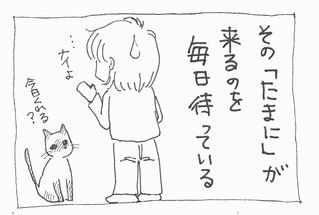 その「たまに」が
来るのを
毎日待っている
…ナイよ
今日くれる
？